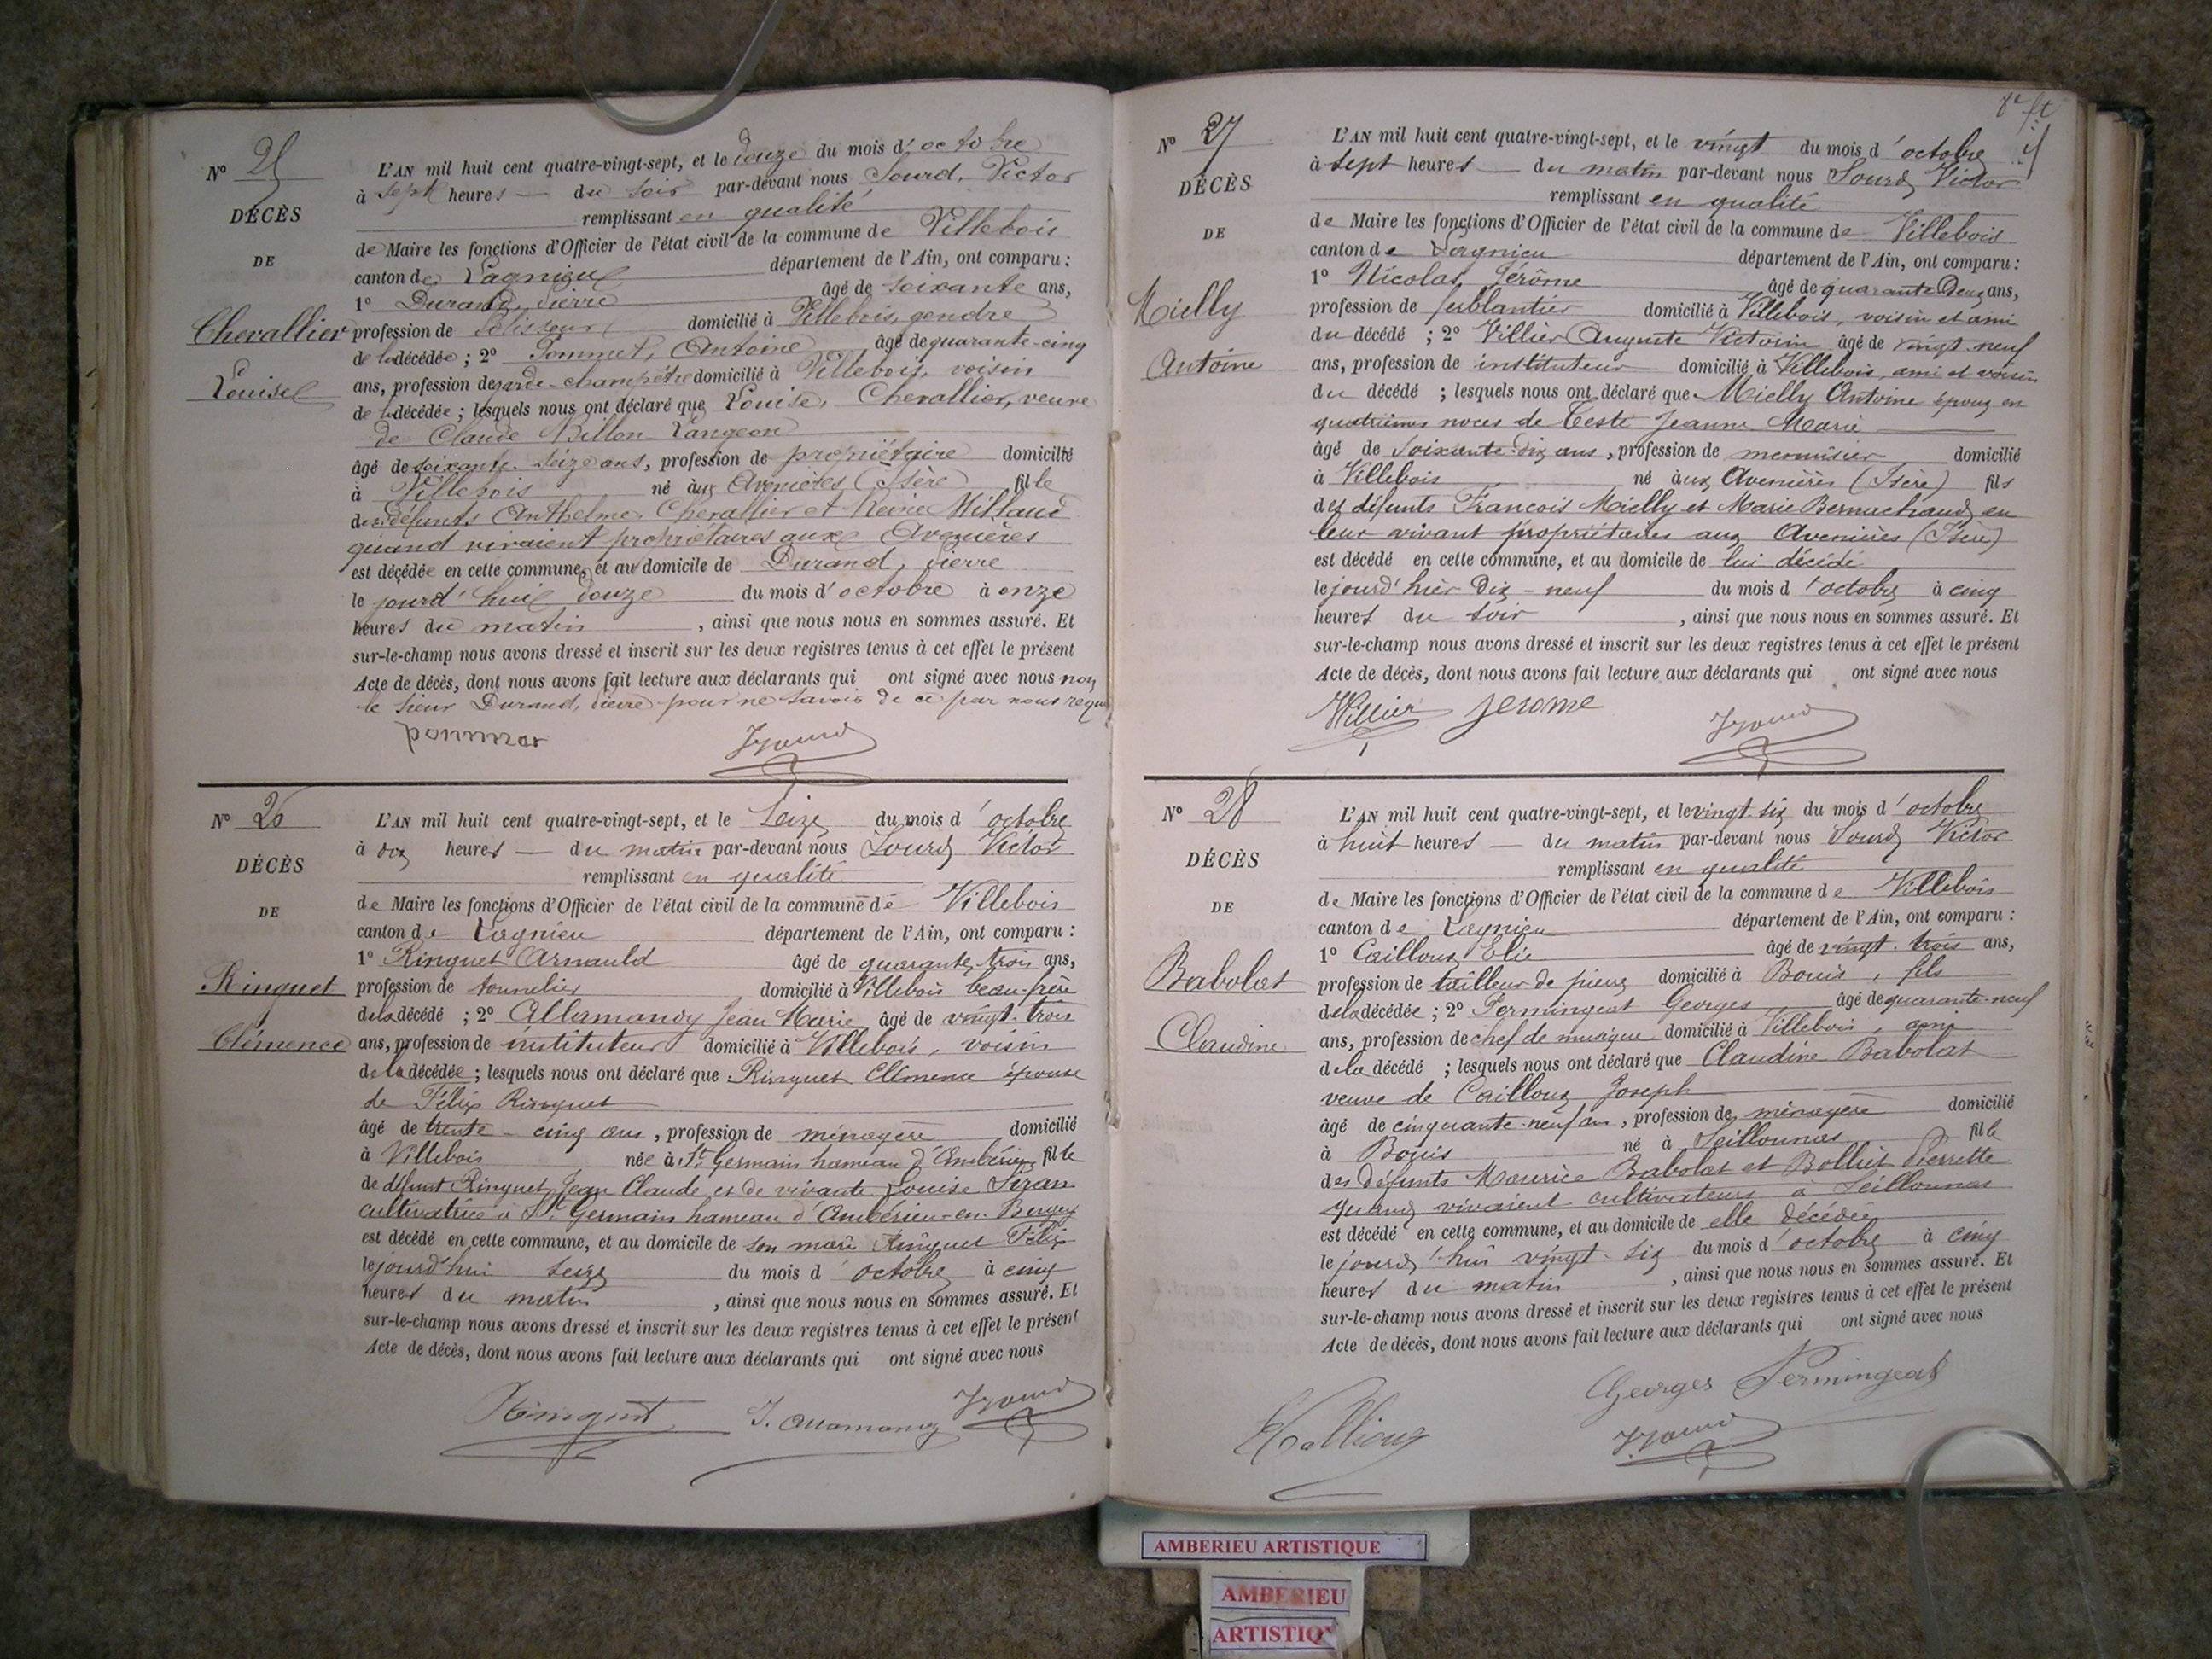 Nº 25
DÉCÈS
DE
Chevallier
Louise
L'AN mil huit cent quatre-vingt-sept, et le douze du mois d'octobre
à sept heures du soir par-devant nous Sourd, Victor
remplissant en qualité
de Maire les fonctions d'Officier de l'état civil de la commune de Villebois
canton de Lagnieu département de l'Ain, ont comparu :
1º Durand, Pierre âgé de soixante ans,
profession de Polisseur domicilié à Villebois, gendre
de la décédée ; 2º Pommet, Antoine âgé de quarante-cinq
ans, profession de garde-champêtre domicilié à Villebois, voisin
de la décédée ; lesquels nous ont déclaré que Louise, Chevallier, veuve
de Claude Billon-Langeon
âgé de soixante-seize ans, profession de propriétaire domicilié
à Villebois né aux Avenières (Isère) fille
des défunts Anthelme Chevallier et Reine Millaud
quand vivaient propriétaires aux Avenières
est décédée en cette commune, et au domicile de Durand, Pierre
le jourd'hui douze du mois d'octobre à onze
heures du matin , ainsi que nous nous en sommes assuré. Et
sur-le-champ nous avons dressé et inscrit sur les deux registres tenus à cet effet le présent
Acte de décès, dont nous avons fait lecture aux déclarants qui ont signé avec nous non
le sieur Durand, Pierre pour ne savoir de ce par nous requis
pommet
Nº 26
DÉCÈS
DE
Ringuet
Clémence
L'AN mil huit cent quatre-vingt-sept, et le Seize du mois d'octobre
à dix heures du matin par-devant nous Sourd Victor
remplissant en qualité
de Maire les fonctions d'Officier de l'état civil de la commune de Villebois
canton de Lagnieu département de l'Ain, ont comparu :
1º Ringuet Arnauld âgé de quarante trois ans,
profession de tonnelier domicilié à Villebois beau-frère
de la décédé ; 2º Allamandy Jean Marie âgé de vingt-trois
ans, profession de instituteur domicilié à Villebois, voisin
de la décédée ; lesquels nous ont déclaré que Ringuet Clémence épouse
de Félix Ringuet
âgé de trente-cinq ans, profession de ménagère domicilié
à Villebois née à St Germain hameau d'Ambérieu fille
de défunt Ringuet Jean Claude et de vivante Louise
cultivatrice à St Germain hameau d'Ambérieu-en-Bugey
est décédé en cette commune, et au domicile de son mari Ringuet Félix
le jourd'hui seize du mois d'octobre à cinq
heures du matin , ainsi que nous nous en sommes assuré. Et
sur-le-champ nous avons dressé et inscrit sur les deux registres tenus à cet effet le présent
Acte de décès, dont nous avons fait lecture aux déclarants qui ont signé avec nous
Ringuet J. Allamandy
Nº 27
DÉCÈS
DE
Mielly
Antoine
L'AN mil huit cent quatre-vingt-sept, et le vingt du mois d'octobre
à sept heures du matin par-devant nous Sourd Victor
remplissant en qualité
de Maire les fonctions d'Officier de l'état civil de la commune de Villebois
canton de Lagnieu département de l'Ain, ont comparu :
1º Nicolas, Jérôme âgé de quarante Deux ans,
profession de ferblantier domicilié à Villebois, voisin et ami
du décédé ; 2º Villier Auguste Victorin âgé de vingt-neuf
ans, profession de instituteur domicilié à Villebois, ami et voisin
du décédé ; lesquels nous ont déclaré que Mielly Antoine époux en
quatrièmes noces de Teste Jeanne Marie
âgé de Soixante-dix ans, profession de menuisier domicilié
à Villebois né aux Avenières (Isère) fils
des défunts François Mielly et Marie Bernuchaud en
leur vivant propriétaires aux Avenières (Isère)
est décédé en cette commune, et au domicile de lui décédé
le jourd'hier Dix-neuf du mois d'octobre à cinq
heures du soir , ainsi que nous nous en sommes assuré. Et
sur-le-champ nous avons dressé et inscrit sur les deux registres tenus à cet effet le présent
Acte de décès, dont nous avons fait lecture aux déclarants qui ont signé avec nous
Villier Jerome
Nº 28
DÉCÈS
DE
Babolat
Claudine
L'AN mil huit cent quatre-vingt-sept, et le vingt-six du mois d'octobre
à huit heures du matin par-devant nous Sourd Victor
remplissant en qualité
de Maire les fonctions d'Officier de l'état civil de la commune de Villebois
canton de Lagnieu département de l'Ain, ont comparu :
1º Cailloux Elie âgé de vingt-trois ans,
profession de tailleur de pierre domicilié à Bouis, fils
de la décédée ; 2º Permingeat Georges âgé de quarante-neuf
ans, profession de chef de musique domicilié à Villebois, ami
de la décédé ; lesquels nous ont déclaré que Claudine Babolat
veuve de Cailloux Joseph
âgé de cinquante-neuf ans, profession de ménagère domicilié
à Bouis né à Seillonnas fille
des défunts Maurice Babolat et Bolliet Pierrette
quand vivaient cultivateurs à Seillonnas
est décédé en cette commune, et au domicile de elle décédée
le jourd'hui vingt-six du mois d'octobre à cinq
heures du matin , ainsi que nous nous en sommes assuré. Et
sur-le-champ nous avons dressé et inscrit sur les deux registres tenus à cet effet le présent
Acte de décès, dont nous avons fait lecture aux déclarants qui ont signé avec nous
Georges Permingeat
AMBERIEU ARTISTIQUE
AMBERIEU
ARTISTIQ